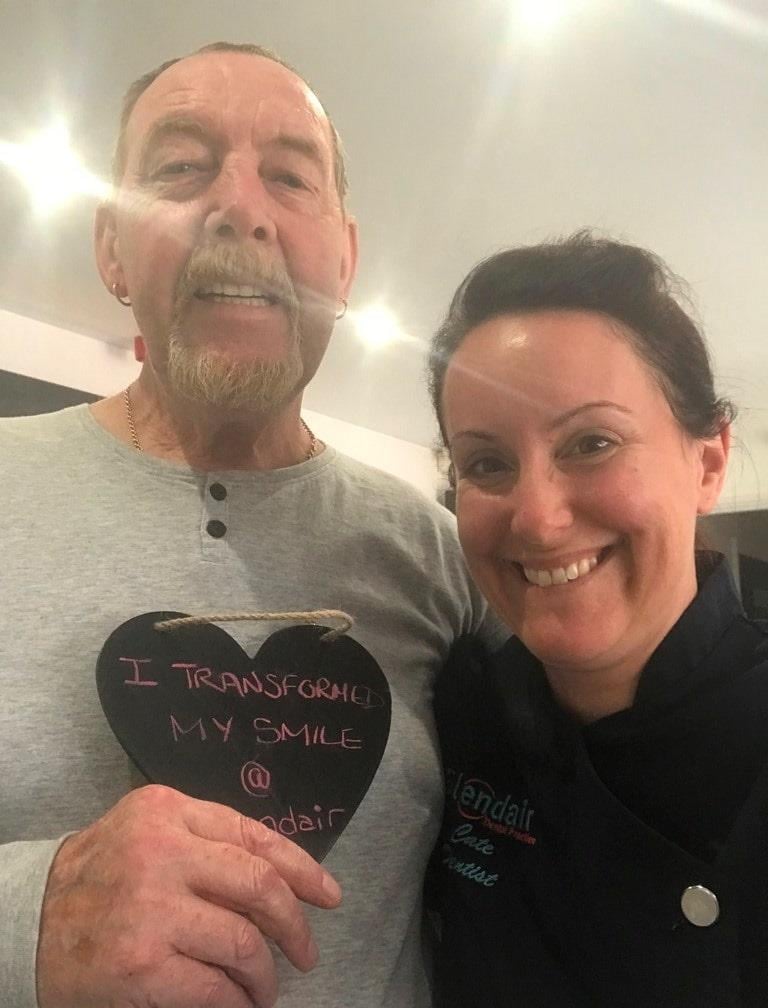 I TRANSFORMED
MY SMILE
@
ndair
lendair
Dental Practice
Cate
Dentist